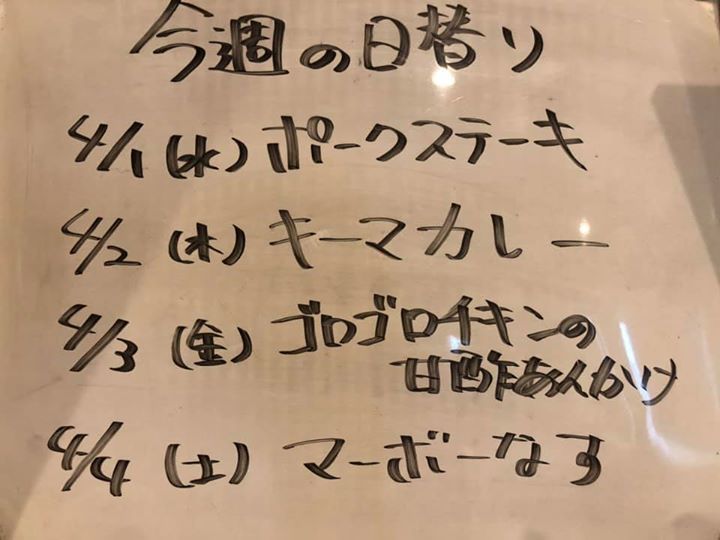 今週の日替り
4/1 (水) ポークステーキ
4/2 (木) キーマカレー
4/3 (金) ゴロゴロチキンの
甘酢あんかけ
4/4 (土) マーボーなす